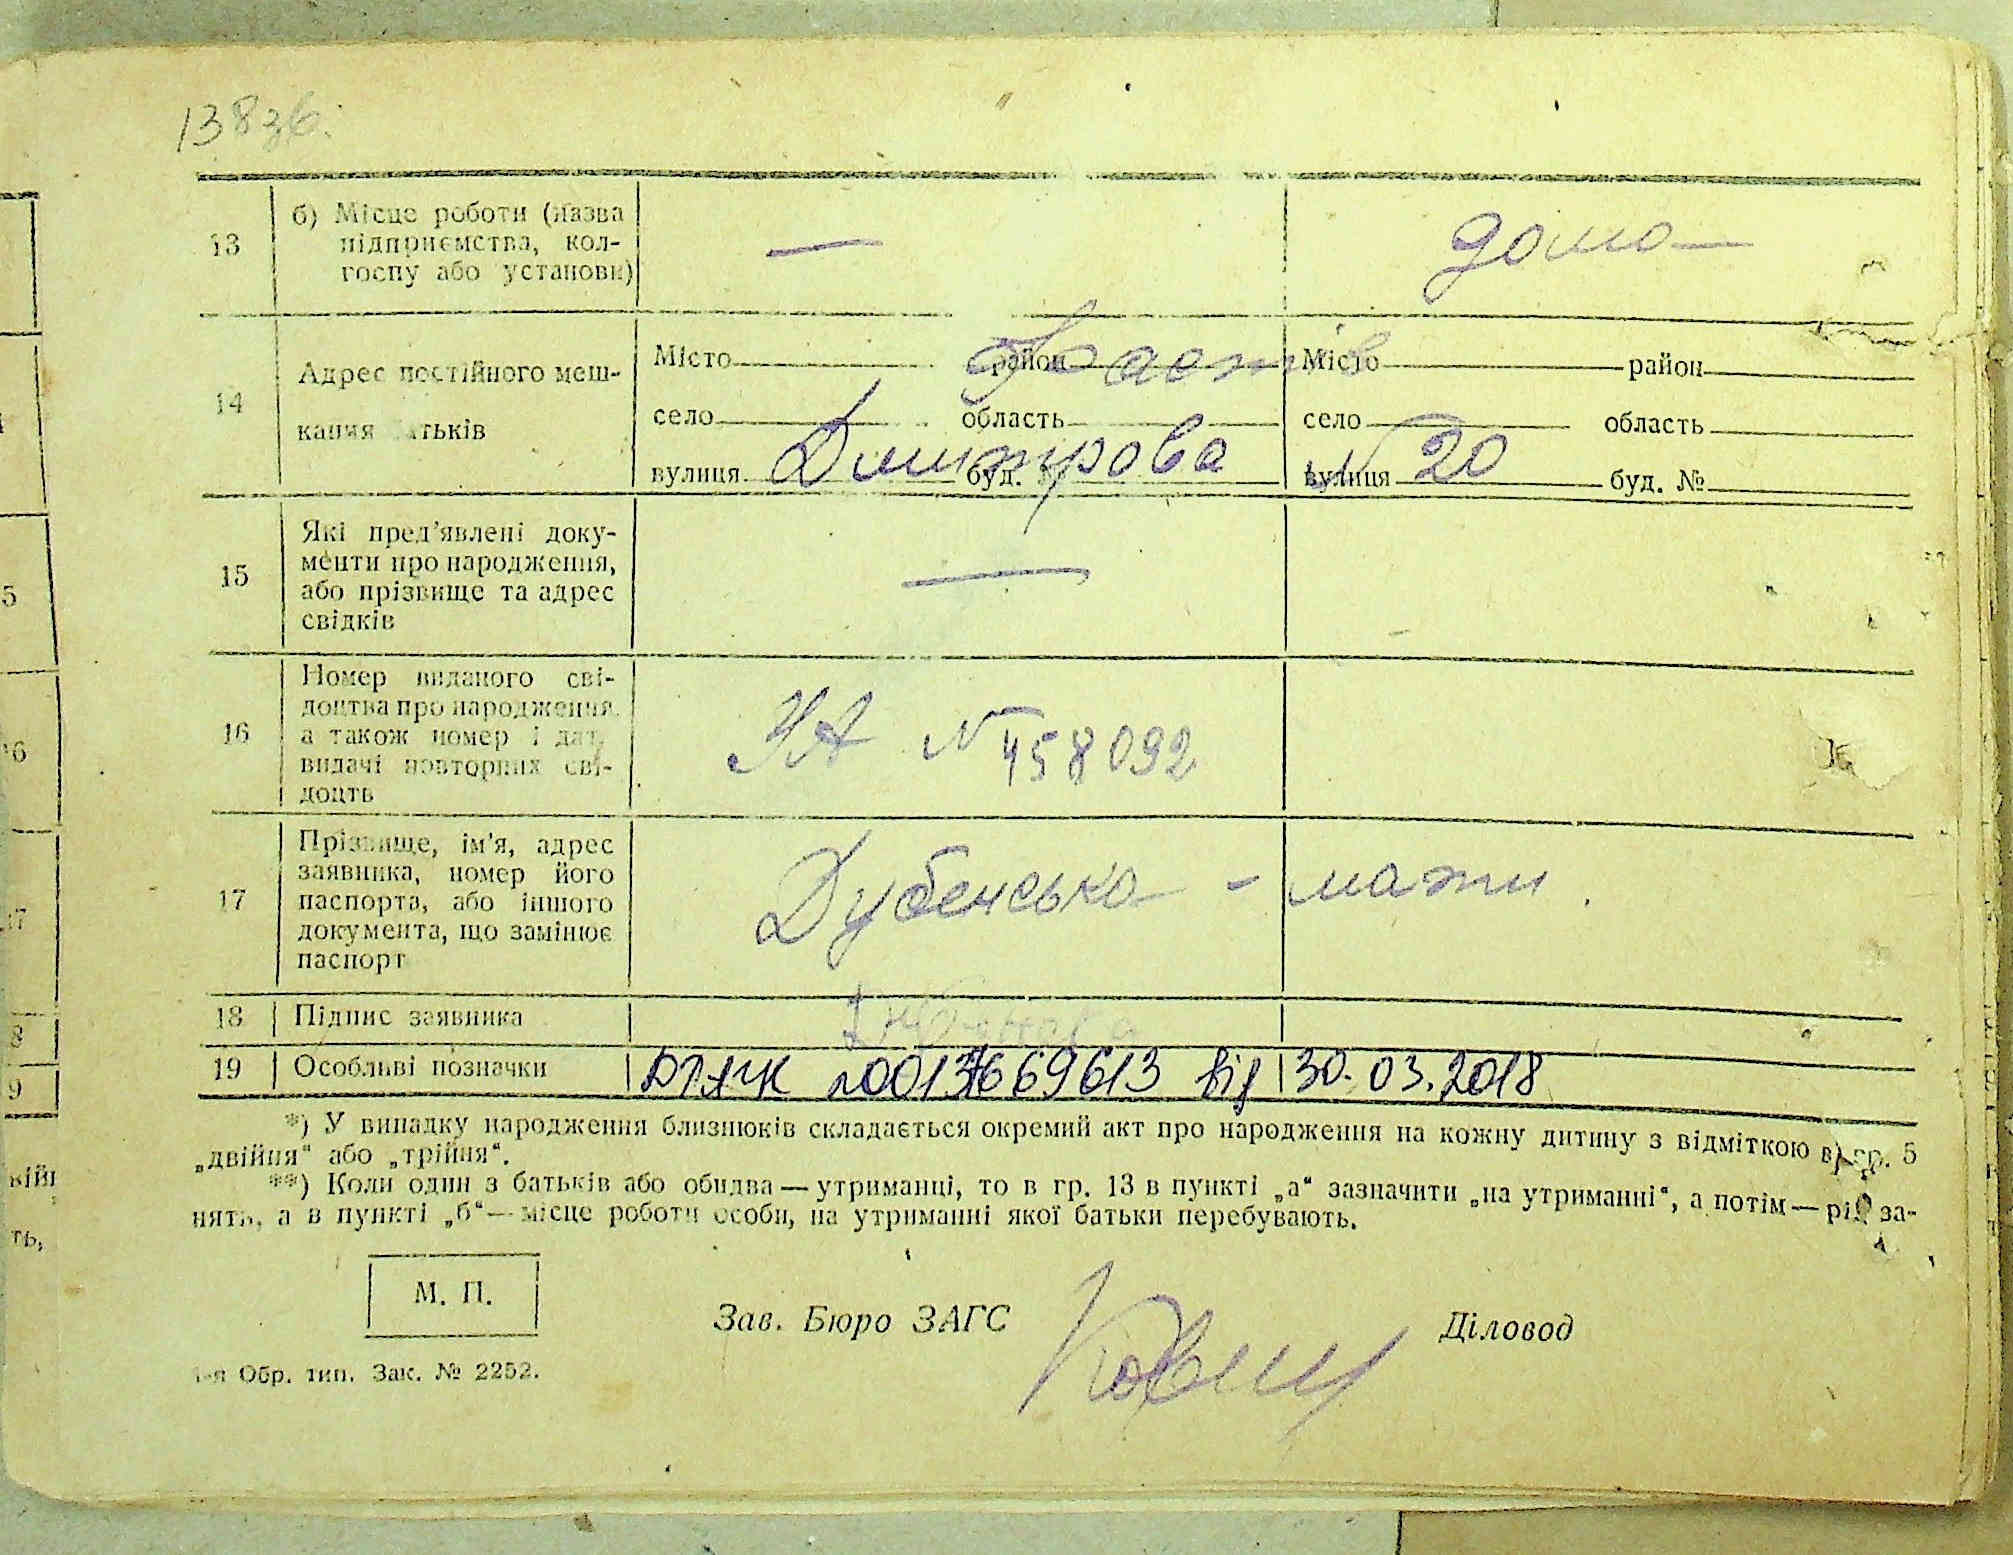 138зв.
13
б) Місце роботи (назва
підприємства, кол-
госпу або установи)
—
дома
14
Адрес постійного меш-
кання батьків
Місто район Місто район
Фастів
село область село область
вулиця Димитрова буд. вулиця № 20 буд. №
15
Які пред'явлені доку-
менти про народження,
або прізвище та адрес
свідків
—
16
Номер виданого сві-
доцтва про народження,
а також номер і дат.
видачі повторних сві-
доцтв
УА № 458092
17
Прізвище, ім'я, адрес
заявника, номер його
паспорта, або іншого
документа, що замінює
паспорт
Дубенська - мати.
18 Підпис заявника
19 Особливі позначки
від 30.03.2018
*) У випадку народження близнюків складається окремий акт про народження на кожну дитину з відміткою в гр. 5
„двійня“ або „трійня“.
**) Коли один з батьків або обидва — утриманці, то в гр. 13 в пункті „а“ зазначити „на утриманні“, а потім — рід за-
нять, а в пункті „б“ — місце роботи особи, на утриманні якої батьки перебувають.
М. П.
Зав. Бюро ЗАГС
Діловод
1-я Обр. тип. Зак. № 2252.
5
16
17
8
9
ть,